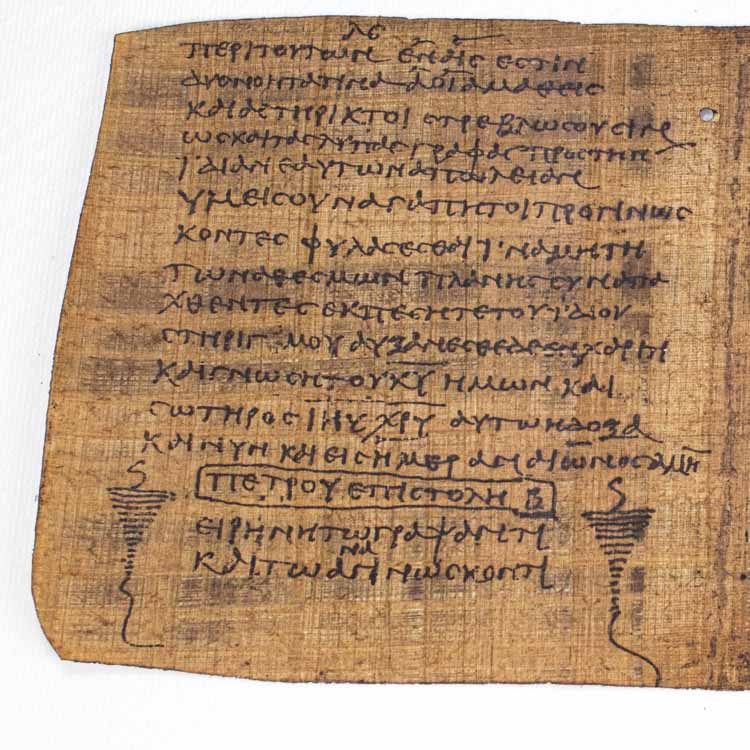 λε
περιτουτωνεναιςεστιν
δυσνοητατιναα οιαμαθεις
καιαστηρικτοι στρεβλωσουσιν
ωςκαιταςλυπαςγραφαςπροςτην
ϊδιανεαυτωναπωλειαν
υμειςουναγαπητοιπρογινωσ
κοντες φυλασεσθαιϊναμητη
τωναθεσμων πλανηςσυναπα
χθεντεςεκπεσητετουϊδιου
στηριγμουαυξανεσθεδεενχαριτι
καιγνωσητουκυ ημων και
σωτηροςιηυ χρυ αυτωηδοξα
καινυν καιειςημεραναιωνοςαμη
πετρουεπιστολη β
ειρηνητωγραψαντι
καιτωαναγινωσκοντι